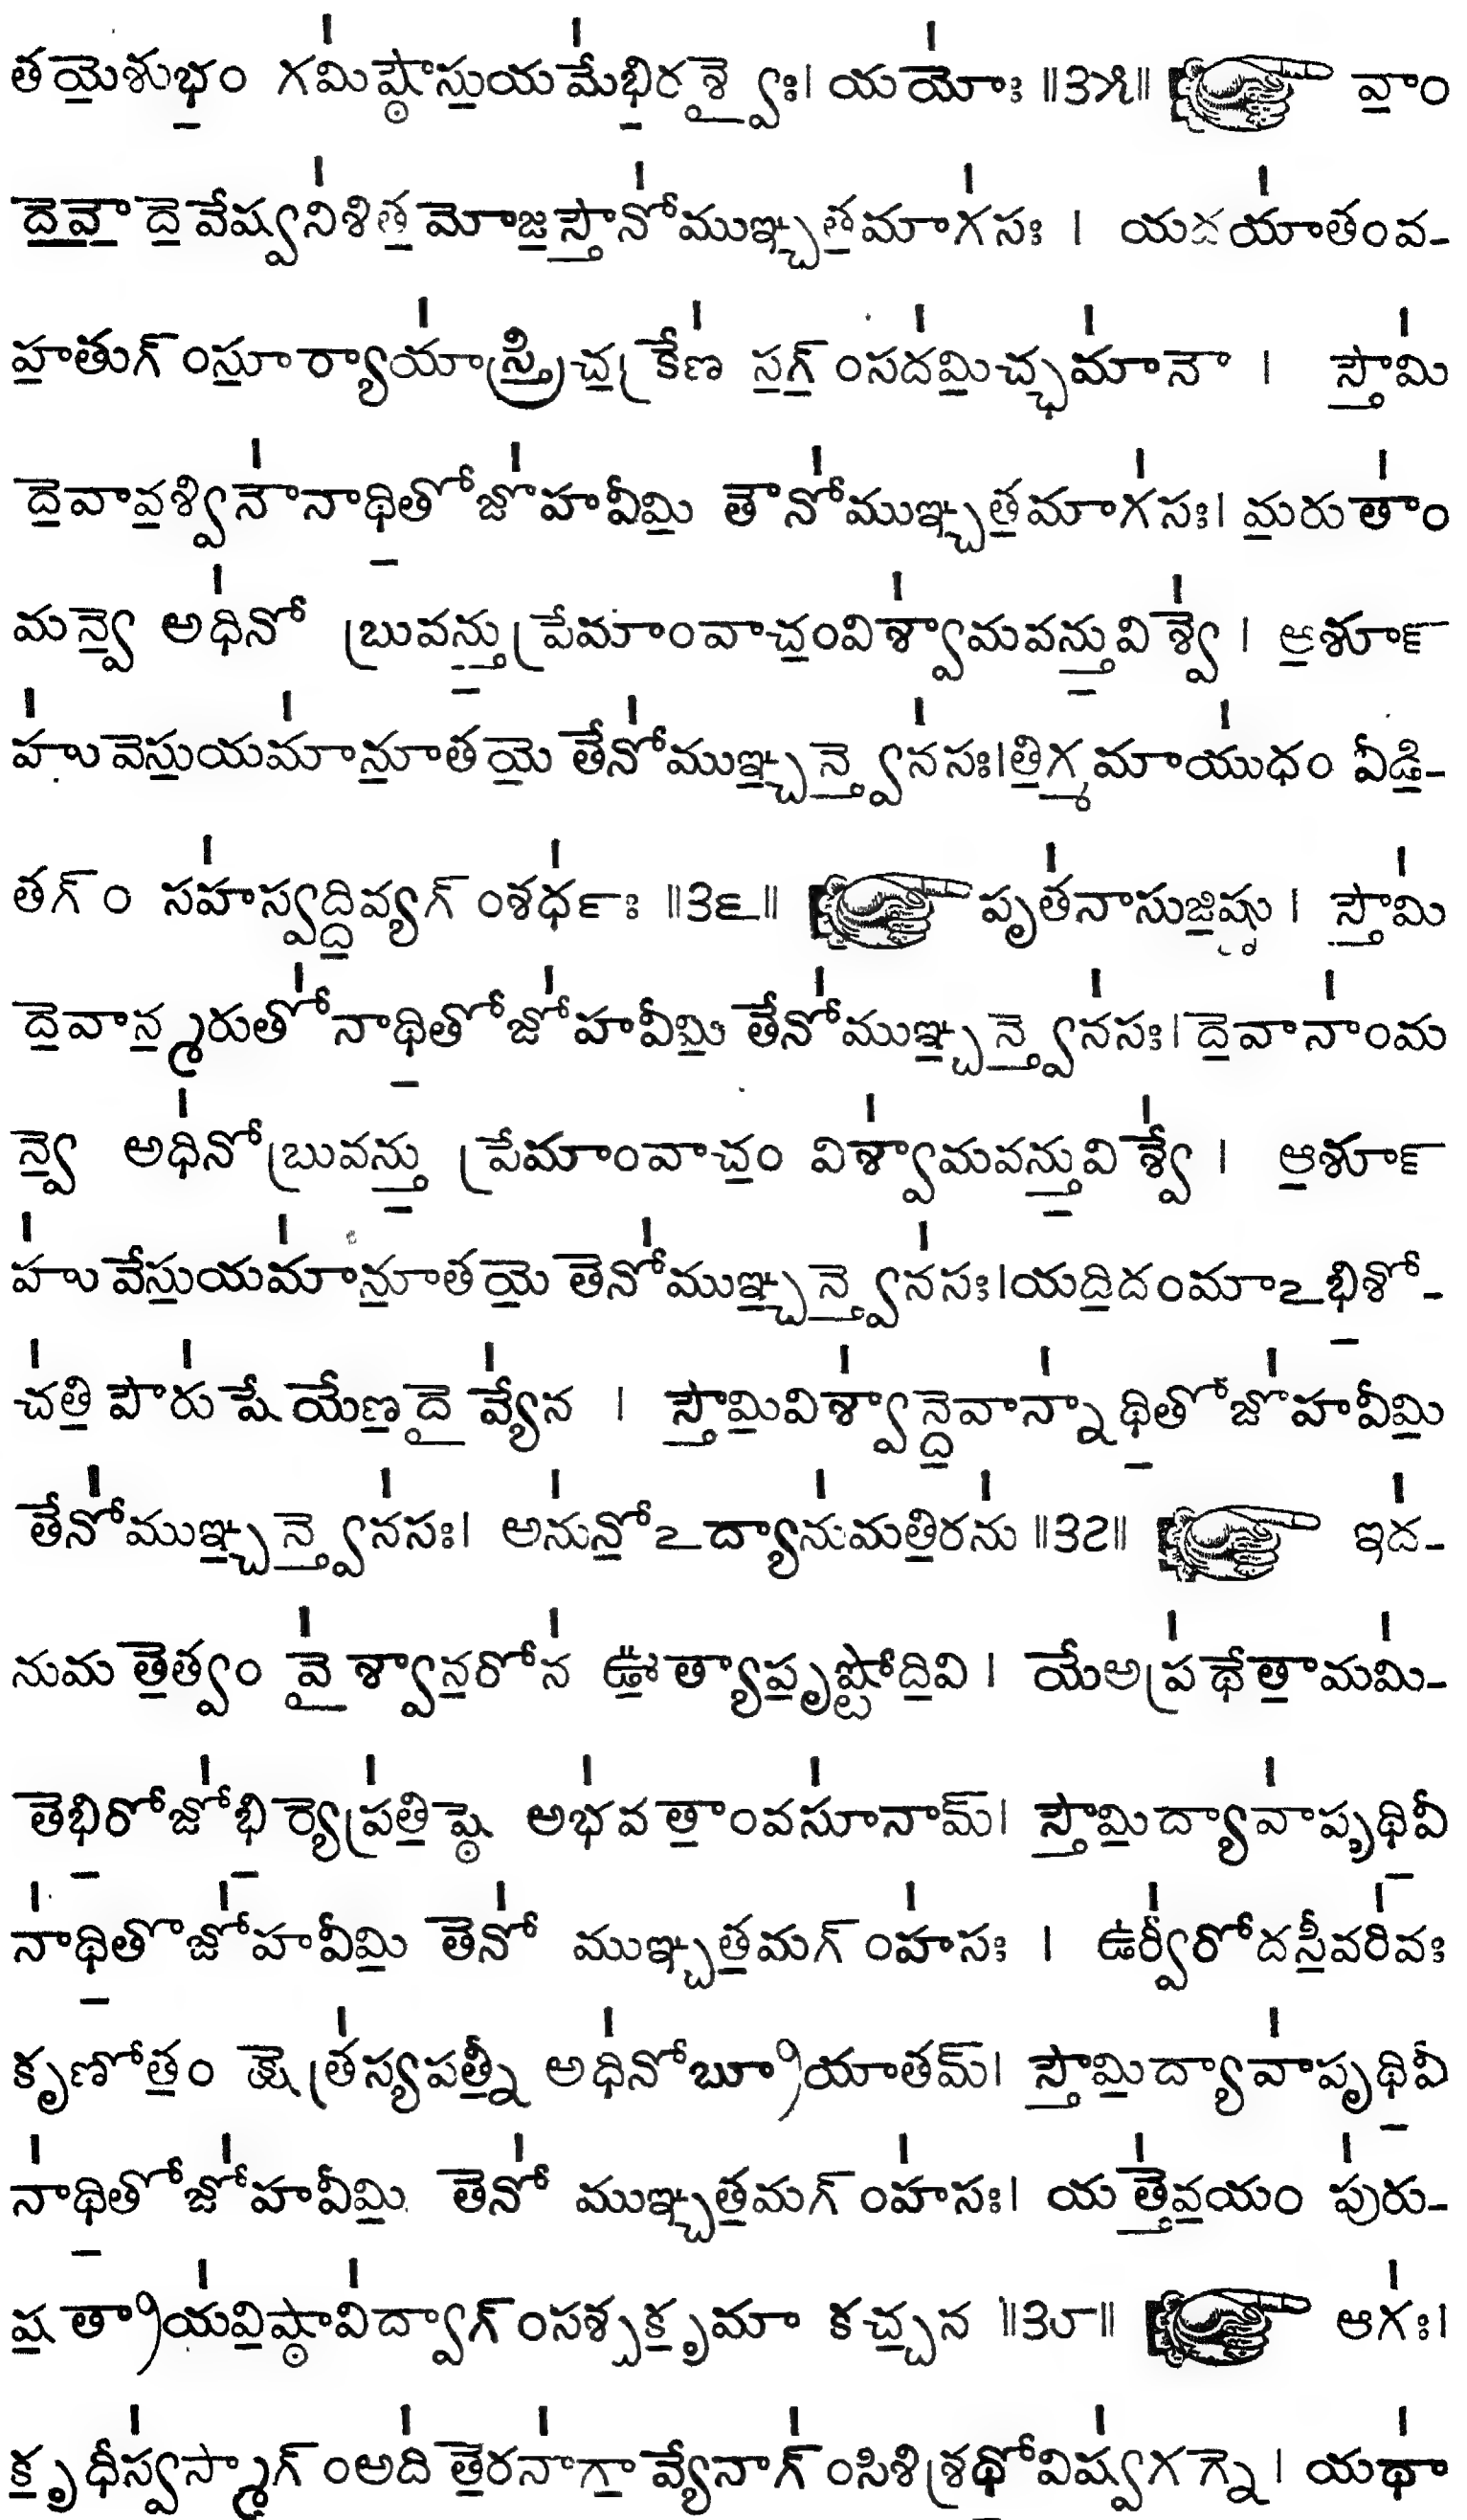 తయైశుభం గమిష్ఠౌస్తుయమేభిరశ్వైః। యయోః ॥౩౫॥ వాం
దేవౌ దేవేష్వనిశితమోజస్తౌనోముఞ్చతమాగసః । యదయాతంవ-
హతుగ్ంసూర్యాయాస్త్రిచక్రేణ సగ్ంసదమిచ్ఛమానౌ । స్తౌమి
దేవావశ్వినౌనాథితోజోహవీమి తౌనోముఞ్చతమాగసః। మరుతాం
మన్వే అధినో బ్రువన్తుప్రేమాంవాచంవిశ్వామవన్తువిశ్వే । ఆశూన్
హువేసుయమానూతయే తేనోముఞ్చన్త్వేనసః।తిగ్మమాయుధం వీడి-
తగ్ం సహస్వద్దివ్యగ్ంశర్ధః ॥౩౬॥ పృతనాసుజిష్ణు । స్తౌమి
దేవాన్మరుతోనాథితోజోహవీమి తేనోముఞ్చన్త్వేనసః।దేవానాంమ
న్వే అధినోబ్రువన్తు ప్రేమాంవాచం విశ్వామవన్తువిశ్వే । ఆశూన్
హువేసుయమానూతయే తేనోముఞ్చన్త్వేనసః।యదిదంమాఽభిశో-
చతి పౌరుషేయేణదైవ్యేన । స్తౌమివిశ్వాన్దేవాన్నాథితోజోహవీమి
తేనోముఞ్చన్త్వేనసః। అనునోఽద్యానుమతిరను ॥౩౭॥ ఇద-
నుమతేత్వం వైశ్వానరోన ఊత్యాపృష్టోదివి । యేఅప్రథేతామమి-
తేభిరోజోభిర్యేప్రతిష్ఠే అభవతాంవసూనామ్। స్తౌమిద్యావాపృథివీ
నాథితోజోహవీమి తేనో ముఞ్చతమగ్ంహసః । ఉర్వీరోదసీవరివః
కృణోతం క్షేత్రస్యపత్నీ అధినోబ్రూయాతమ్। స్తౌమిద్యావాపృథివీ
నాథితోజోహవీమి తేనో ముఞ్చతమగ్ంహసః। యత్తేవయం పురు-
షత్రాయవిష్ఠావిద్వాగ్ంసశ్చకృమా కచ్చన ॥౩౮॥ ఆగః।
కృధీస్వస్మాగ్ంఅదితేరనాగావ్యేనాగ్ంసిశిశ్రథోవిష్వగగ్నే। యథా